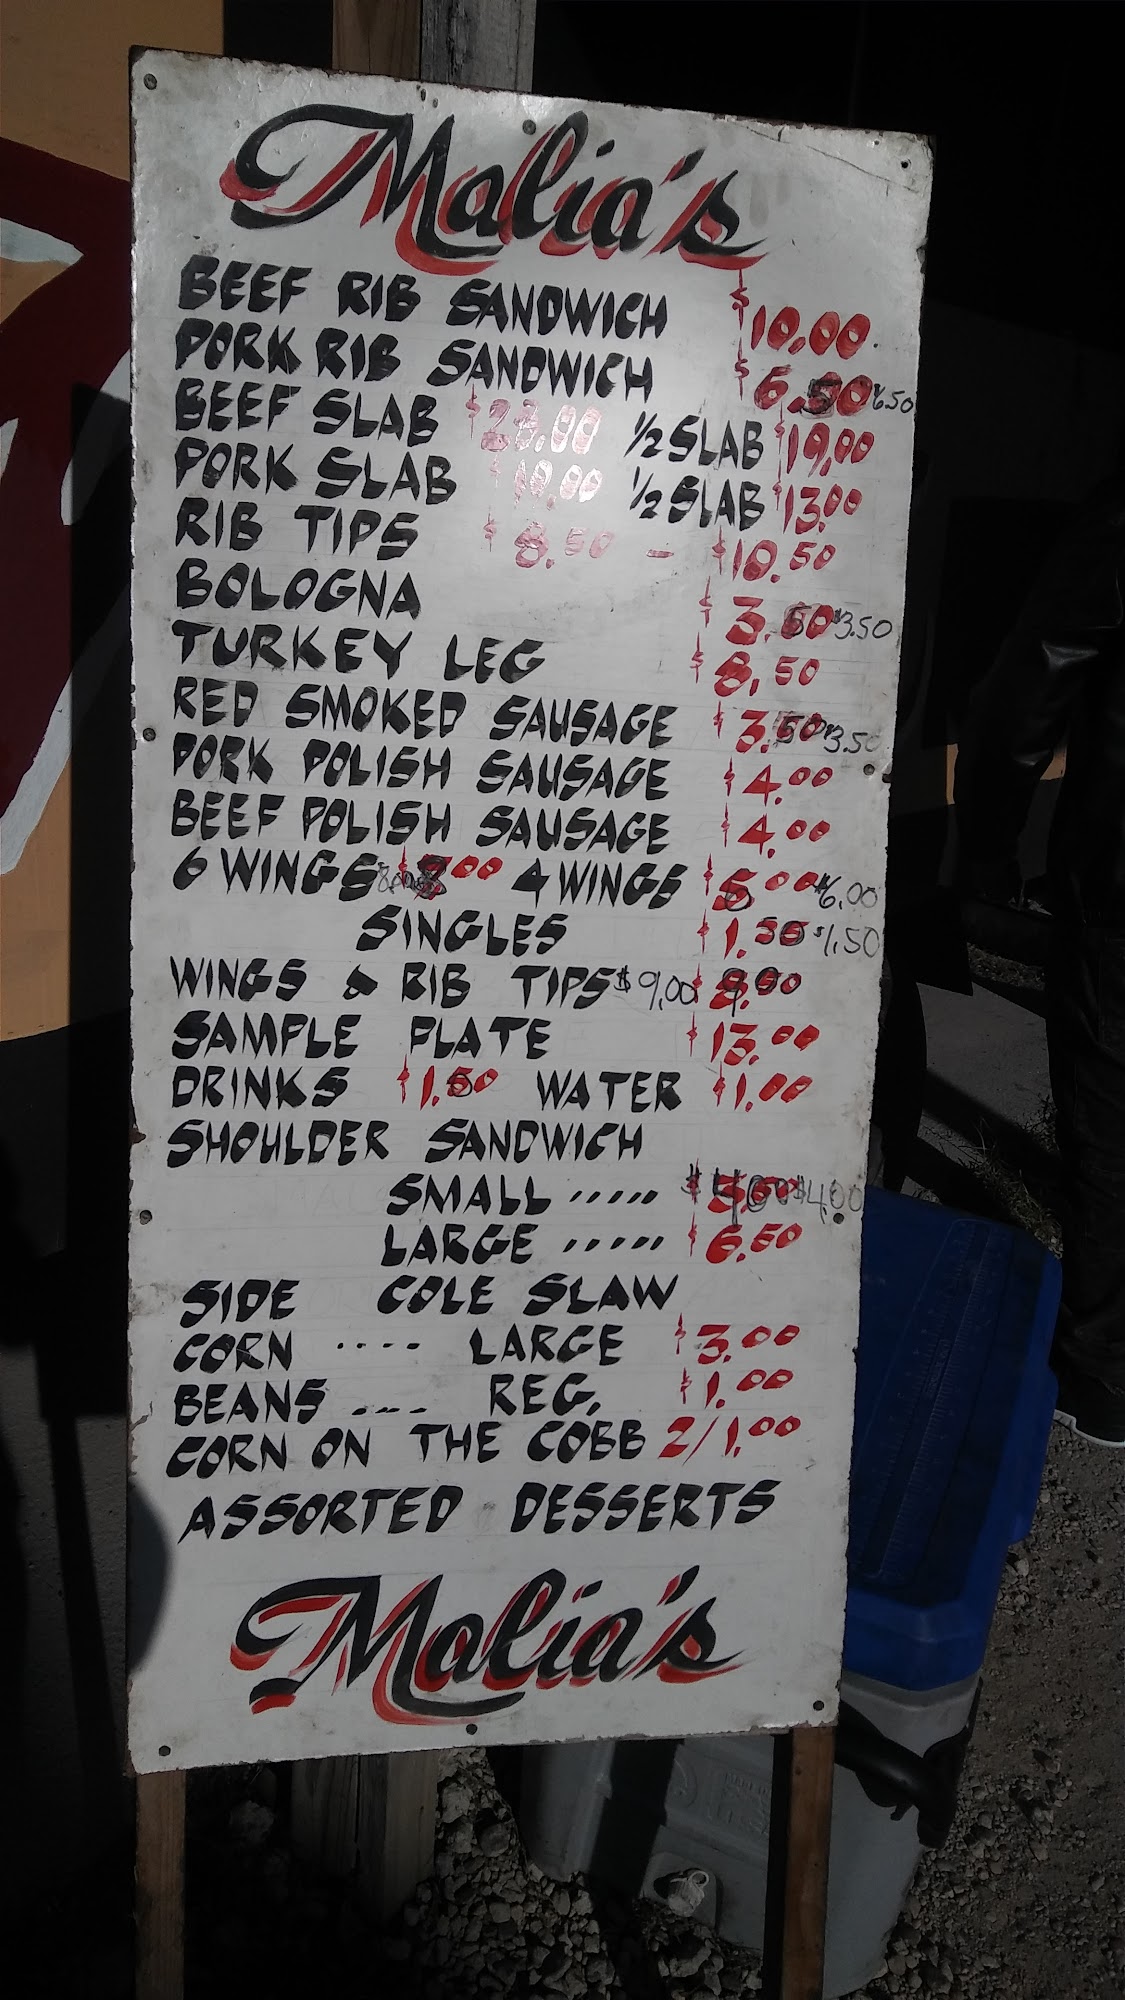 Malia's
BEEF RIB SANDWICH $10.00
PORK RIB SANDWICH $6.50 6.50
BEEF SLAB $28.00 1/2 SLAB $19.00
PORK SLAB 1/2 SLAB $13.00
RIB TIPS $8.50 - $10.50
BOLOGNA $3.50 $3.50
TURKEY LEG $8.50
RED SMOKED SAUSAGE $3.50 $3.50
PORK POLISH SAUSAGE $4.00
BEEF POLISH SAUSAGE $4.00
6 WINGS 8.00 4 WINGS $6.00
SINGLES $1.50
WINGS & RIB TIPS $9.00
SAMPLE PLATE $13.00
DRINKS $1.50 WATER $1.00
SHOULDER SANDWICH
SMALL ..... $4.00 $4.00
LARGE ..... $6.50
SIDE COLE SLAW
CORN .... LARGE $3.00
BEANS .... REG. $1.00
CORN ON THE COBB 2/1.00
ASSORTED DESSERTS
Malia's